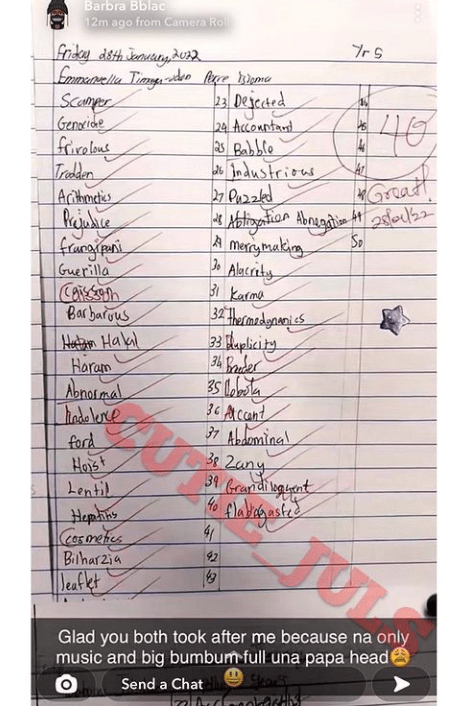 Barbra Bblac
12m ago from Camera Roll
Friday 28th January, 2022
Yr 5
Scamper
Genocide
frivolous
Trodden
Arithmetics
Prejudice
frangipani
Guerilla
Caisson
Barbarous
Halal
Haram
Abnormal
Indolence
ford
Hoist
Lentil
Hepatitis
Cosmetics
Bilharzia
leaflet
23 Dejected
24 Accountant
25 Babble
26 Industrious
27 Puzzled
28 Abnegation
29 merrymaking
30 Alacrity
31 Karma
32 thermodynamics
33 duplicity
34
35
36 Accent
37 Abdominal
38 Zany
39 Grandiloquent
40 flabagasted
41
42
43
47
48
49
50
40
Great!
28/01/22
CUTIE_JULS
Glad you both took after me because na only
music and big bumbum full una papa head😩
😃
Send a Chat